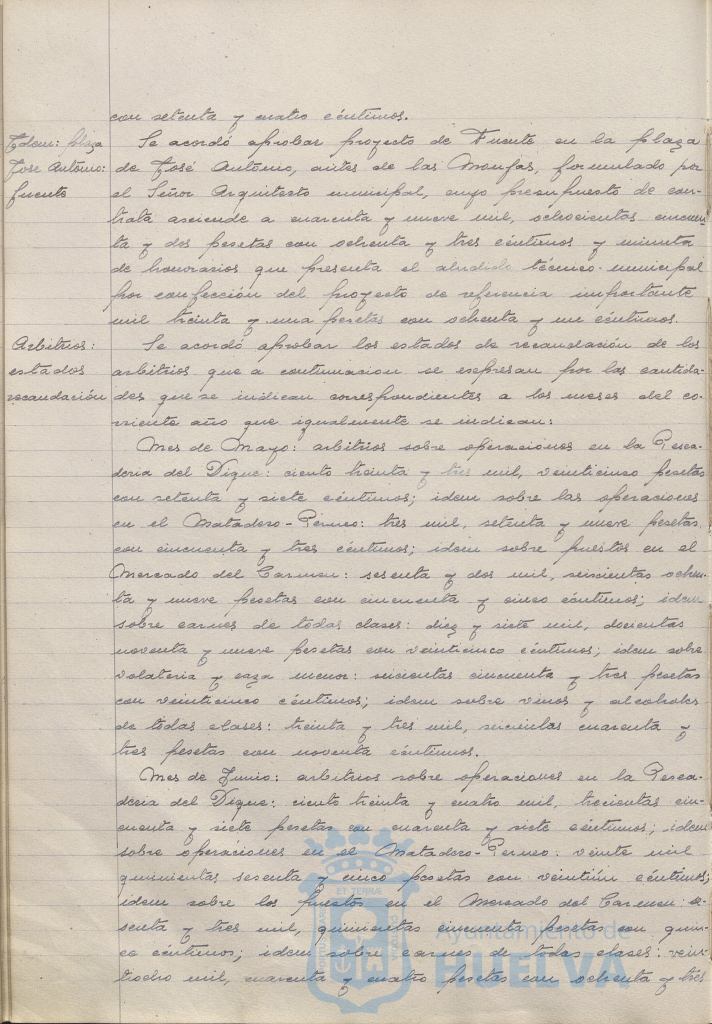 con setenta y cuatro céntimos.
Idem: plaza
José Antonio:
fuente
Se acordó aprobar proyecto de Fuente en la plaza
de José António, antes de las Monjas, formulado por
el Señor Arquitecto municipal, cuyo presupuesto de con-
trata asciende a cuarenta y nueve mil, ochocientas cincuen-
ta y dos pesetas con ochenta y tres céntimos y minuta
de honorarios que presenta el aludido técnico municipal
por confección del proyecto de referencia importante
mil treinta y una pesetas con ochenta y un céntimos.
Arbitrios:
estados
recaudación
Se acordó aprobar los estados de recaudación de los
arbitrios que a continuacion se expresan por las cantida-
des que se indican correspondientes a los meses del co-
rriente año que igualmente se indican:
Mes de Mayo: arbitrios sobre operaciones en la Pesca-
deria del Dique: ciento treinta y tres mil, veinticinco pesetas
con setenta y siete céntimos; idem sobre las operaciones
en el Matadero-Perneo: tres mil, setenta y nueve pesetas
con cincuenta y tres céntimos; idem sobre puestos en el
Mercado del Carmen: sesenta y dos mil, seiscientas ochen-
ta y nueve pesetas con cincuenta y cinco céntimos; idem
sobre carnes de todas clases: diez y siete mil, doscientas
noventa y nueve pesetas con veinticinco céntimos; idem sobre
volateria y caza menor: seiscientas cincuenta y tres pesetas
con veinticinco céntimos; idem sobre vinos y alcoholes
de todas clases: treinta y tres mil, seiscientas cuarenta y
tres pesetas con noventa céntimos.
Mes de Junio: arbitrios sobre operaciones en la Pesca-
deria del Dique: ciento treinta y cuatro mil, trescientas cin-
cuenta y siete pesetas con cuarenta y siete céntimos; idem
sobre operaciones en el Matadero-Perneo: veinte mil
quinientas sesenta y cinco pesetas con veintiún céntimos;
idem sobre los puestos en el Mercado del Carmen: se-
senta y tres mil, quinientas cincuenta pesetas con quin-
ce céntimos; idem sobre carnes de todas clases: vein-
tiocho mil, cuarenta y cuatro pesetas con ochenta y tres
ET TERRAE
Ayuntamiento de
HUELVA